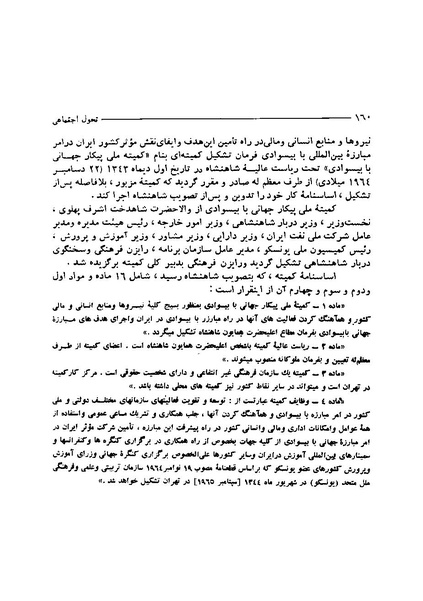 ۱۶۰ تحول اجتماعی
نیروها و منابع انسانی ومالی‌در راه تأمین این‌هدف وایفای‌نقش مؤثر کشور ایران درامر
مبارزهٔ بین‌المللی با بیسوادی فرمان تشکیل کمیته‌ای بنام «کمیته ملی پیکار جهانی
با بیسوادی» تحت ریاست عالیهٔ شاهنشاه در تاریخ اول دیماه ۱۳۴۳ (۲۲ دسامبر
۱۹۶۴ میلادی) از طرف معظم له صادر و مقرر گردید که کمیتهٔ مزبور، بلافاصله پس‌از
تشکیل، اساسنامهٔ کار خود را تدوین و پس‌از تصویب شاهنشاه اجرا کند.
کمیتهٔ ملی پیکار جهانی با بیسوادی از والاحضرت شاهدخت اشرف پهلوی،
نخست‌وزیر، وزیر دربار شاهنشاهی، وزیر امور خارجه، رئیس هیئت مدیره ومدیر
عامل شرکت ملی نفت ایران، وزیر دارایی، وزیر مشاور، وزیر آموزش و پرورش،
رئیس کمیسیون ملی یونسکو، مدیر عامل سازمان برنامه، رایزن فرهنگی وسخنگوی
دربار شاهنشاهی تشکیل گردید ورایزن فرهنگی بدبیر کلی کمیته برگزیده شد.
اساسنامهٔ کمیته، که بتصویب شاهنشاه رسید، شامل ۱۶ ماده و مواد اول
ودوم و سوم و چهارم آن از اینقرار است:
«ماده ۱ ــ کمیتهٔ ملی پیکار جهانی با بیسوادی بمنظور بسیج کلیهٔ نیروها ومنابع انسانی و مالی
کشور و هماهنگ کردن فعالیت های آنها در راه مبارزه با بیسوادی در ایران واجرای هدف های مبارزهٔ
جهانی بابیسوادی بفرمان مطاع اعلیحضرت همایون شاهنشاه تشکیل میگردد.»
«ماده ۲ ــ ریاست عالیهٔ کمیته باشخص اعلیحضرت همایون شاهنشاه است. اعضای کمیته از طرف
معظم‌له تعیین و بفرمان ملوکانه منصوب میشوند.»
«ماده ۳ ــ کمیته یك سازمان فرهنگی غیر انتفاعی و دارای شخصیت حقوقی است. مرکز کارکمیته
در تهران است و میتواند در سایر نقاط کشور نیز کمیته های محلی داشته باشد.»
«ماده ۴ ــ وظایف کمیته عبارتست از: توسعه و تقویت فعالیتهای سازمانهای مختلف دولتی و ملی
کشور در امر مبارزه با بیسوادی و هماهنگ کردن آنها، جلب همکاری و تشریك مساعی عمومی واستفاده از
همهٔ عوامل وامکانات اداری ومالی وانسانی کشور در راه پیشرفت این مبارزه، تأمین شرکت مؤثر ایران در
امر مبارزهٔ جهانی با بیسوادی از کلیه جهات بخصوص از راه همکاری در برگزاری کنگره ها وکنفرانسها و
سمینارهای بین‌المللی آموزش درایران وسایر کشورها علی‌الخصوص برگزاری کنگرهٔ جهانی وزرای آموزش
وپرورش کشورهای عضو یونسکو که براساس قطعنامهٔ مصوب ۱۹ نوامبر ۱۹۶۴ سازمان تربیتی وعلمی وفرهنگی
ملل متحد (یونسکو) در شهریور ماه ۱۳۴۴ [سپتامبر ۱۹۶۵] در تهران تشکیل خواهد شد.»